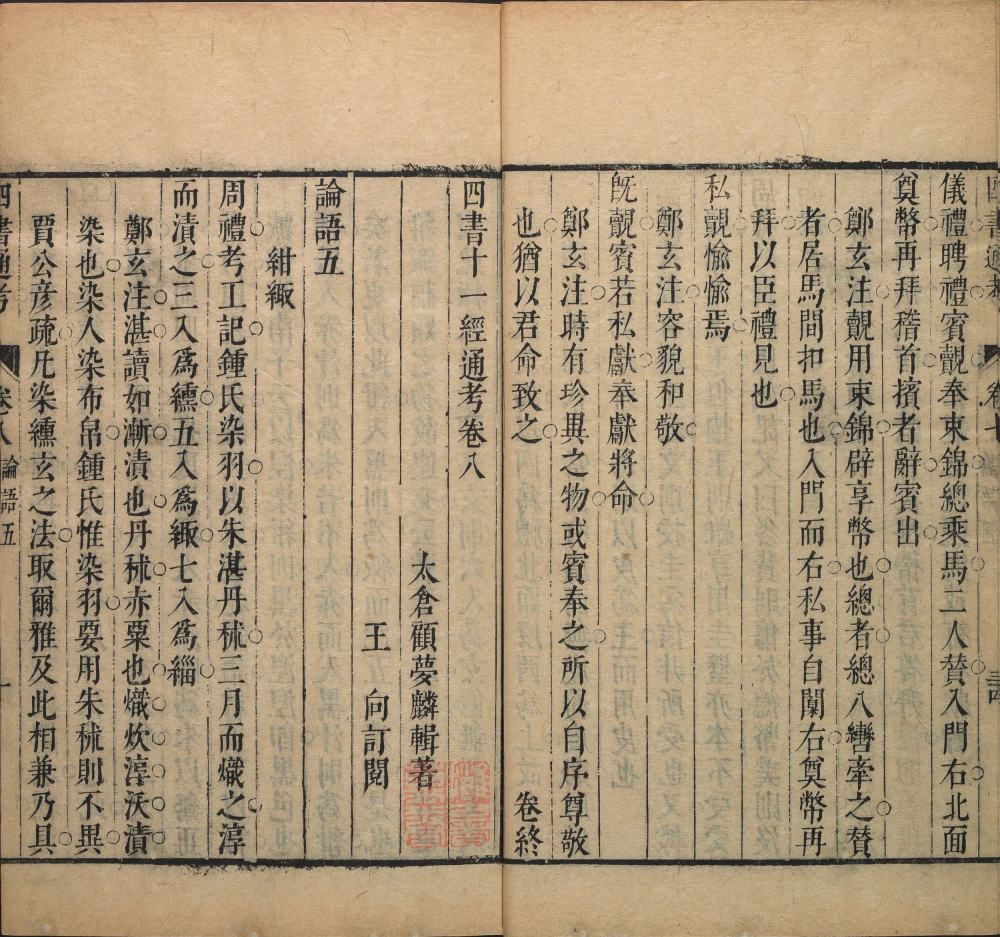 儀禮聘禮賓覿奉束錦總乘馬二人贊入門右北面
奠幣再拜稽首擯者辭賓出
鄭玄注覿用束錦辟享幣也總者總八轡牽之贊
者居馬間扣馬也入門而右私事自闑右奠幣再
拜以臣禮見也
私覿愉愉焉
鄭玄注容貌和敬
旣覿賓若私獻奉獻將命
鄭玄注時有珍異之物或賓奉之所以自序尊敬
也猶以君命致之
卷終
四書十一經通考卷八
太倉顧夢麟輯著
王向訂閱
論語五
紺緅
周禮考工記鍾氏染羽以朱湛丹秫三月而熾之淳
而漬之三入爲纁五入爲緅七入爲緇
鄭玄注湛讀如漸漬也丹秫赤粟也熾炊淳沃漬
染也染人染布帛鍾氏惟染羽要用朱秫則不異
賈公彥疏凡染纁玄之法取爾雅及此相兼乃具
四書通考
卷八
論語五
一